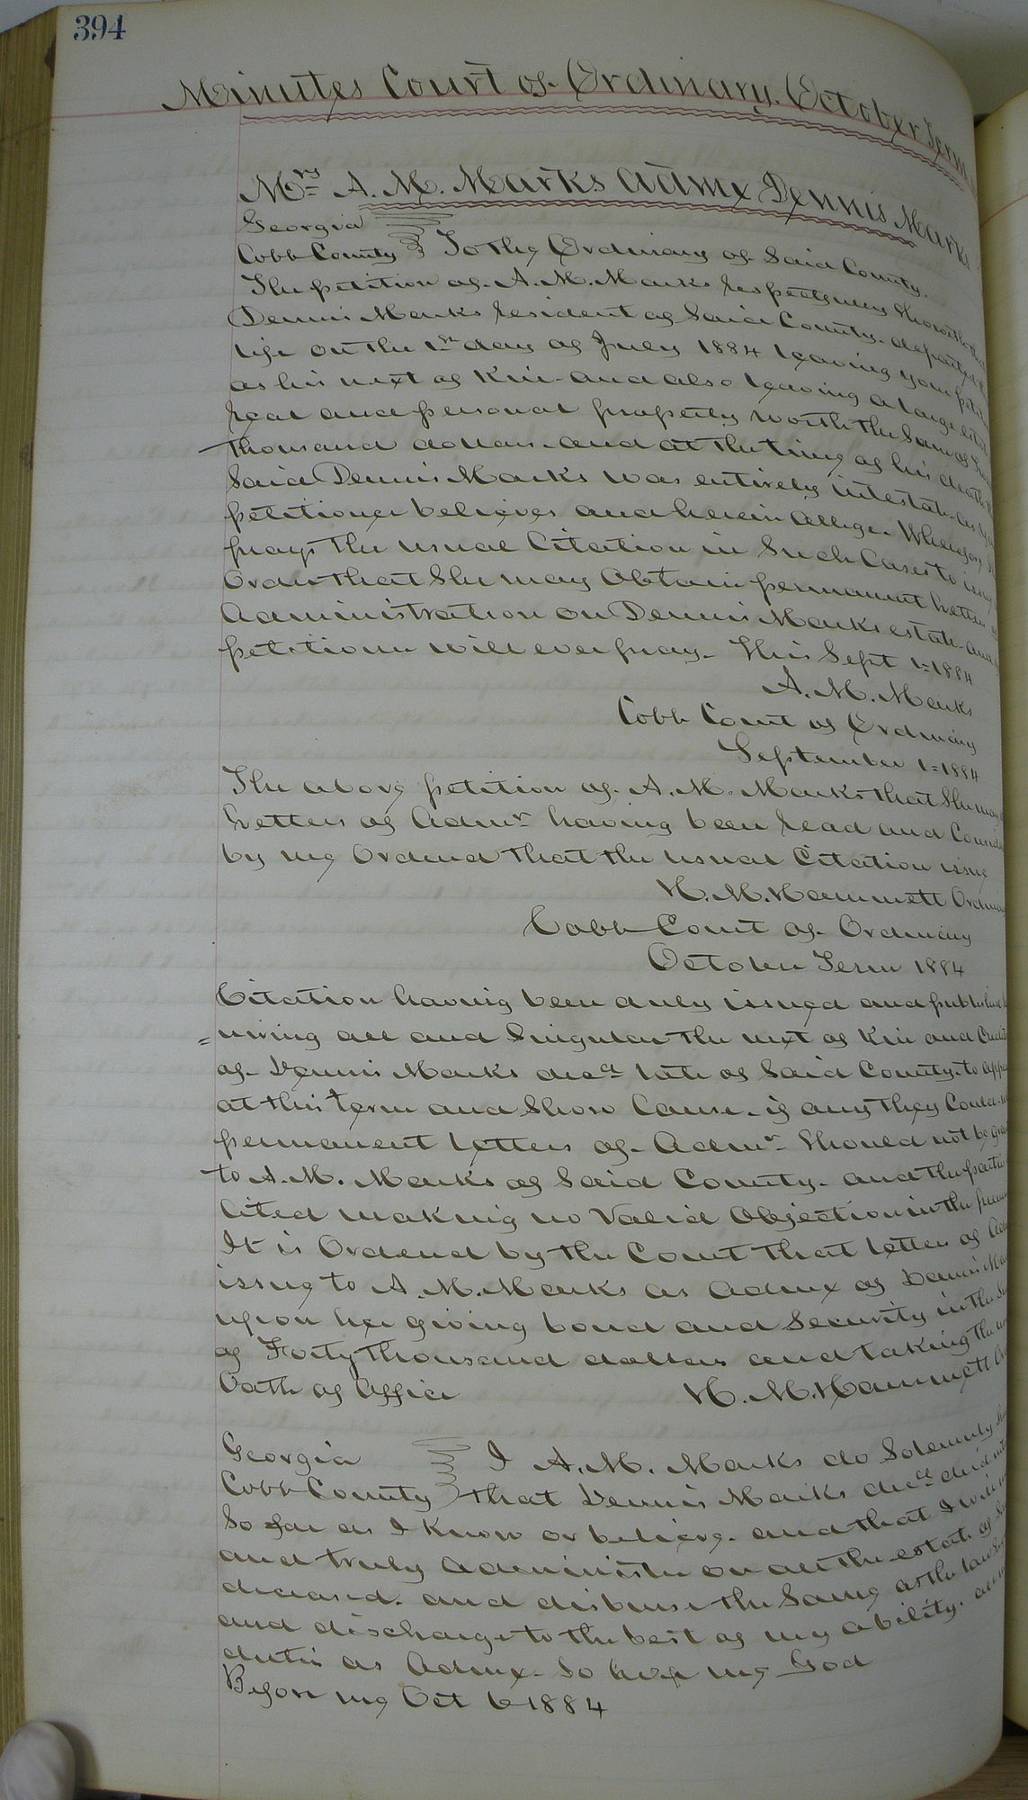 394
Minutes Court of Ordinary. October Term
Mrs A. M. Marks admx Dennis Marks
Georgia
Cobb County To the Ordinary of Said County.
The petition of A. M. Marks respectfully showeth that
Dennis Marks resident of Said County. departed
life on the 1st day of July 1884 leaving your
as his next of Kin and also leaving a large
real and personal property worth the Sum of
thousand dollars and at the time of his death
Said Dennis Marks was entirely intestate as
petitioner believes and herein allege. Wherefore
prays the usual Citation in Such Cases to issue
Order that She may Obtain permanent Letters
Administration on Dennis Marks estate and
petitioner will ever pray. This Sept 1=1884
A. M. Marks
Cobb Court of Ordinary
September 1=1884
The above petition of A. M. Marks that She may
Letters of Admr having been read and
by me Ordered that the usual Citation issue
H. M. Hammett
Cobb Court of Ordinary
October Term 1884
Citation having been duly issued and
=uiring all and Singular the next of Kin and
of Dennis Marks decd late of Said County. to
at this term and Show Cause. if any they Could.
permanent letters of Admr Should not be
to A. M. Marks of Said County. and the
Cited making no Valid Objection in the
It is Ordered by the Court that letters of
issue to A. M. Marks as Admx of Dennis
upon her giving bond and Security in the
of Forty thousand dollars and taking the
Oath of Office H. M. Hammett
Georgia I A. M. Marks do Solemnly
Cobb County that Dennis Marks decd died
So far as I know or believe. and that I will
and truly administer on all the estate of
deceased. and disburse the Same as the law
and discharge to the best of my ability.
duties as Admx. So help me God
Before me Oct 6 1884